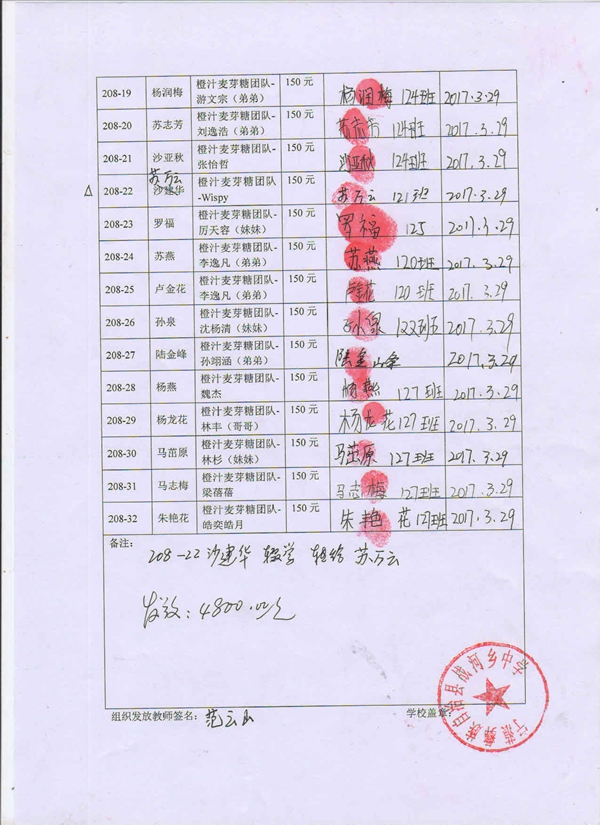 208-19 杨润梅 橙汁麦芽糖团队- 150 元 杨润梅 124班 2017.3.29
游文宗（弟弟）
208-20 苏志芳 橙汁麦芽糖团队- 150 元 苏志芳 124班 2017.3.29
刘逸浩（弟弟）
208-21 沙亚秋 橙汁麦芽糖团队- 150 元 沙亚秋 124班 2017.3.29
张怡哲
苏万云
△ 208-22 沙建华 橙汁麦芽糖团队 150 元 苏万云 121班 2017.3.29
-Wispy
208-23 罗福 橙汁麦芽糖团队- 150 元 罗福 125 2017.3.29
厉天容（妹妹）
208-24 苏燕 橙汁麦芽糖团队- 150 元 苏燕 120班 2017.3.29
李逸凡（弟弟）
208-25 卢金花 橙汁麦芽糖团队- 150 元 卢金花 120班 2017.3.29
李逸凡（弟弟）
208-26 孙泉 橙汁麦芽糖团队- 150 元 孙泉 122班 2017.3.29
沈杨清（妹妹）
208-27 陆金峰 橙汁麦芽糖团队- 150 元 陆金峰 2017.3.29
孙翊涵（弟弟）
208-28 杨燕 橙汁麦芽糖团队- 150 元 杨燕 127班 2017.3.29
魏杰
208-29 杨龙花 橙汁麦芽糖团队- 150 元 杨龙花 127班 2017.3.29
林丰（哥哥）
208-30 马茁原 橙汁麦芽糖团队- 150 元 马茁原 127班 2017.3.29
林杉（妹妹）
208-31 马志梅 橙汁麦芽糖团队- 150 元 马志梅 127班 2017.3.29
梁蓓蓓
208-32 朱艳花 橙汁麦芽糖团队- 150 元 朱艳花 127班 2017.3.29
皓奕皓月
备注：
208-22 沙建华 辍学 转给 苏万云
发放：4800.00元
宁蒗彝族自治县战河乡中学
组织发放教师签名： 范云山 学校盖章：